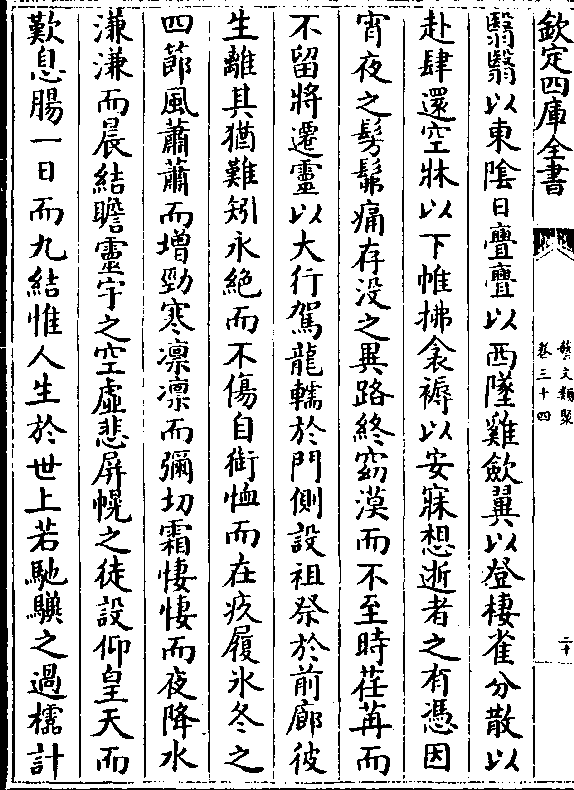 欽定四庫全書
藝文類聚
卷三十四
二十
翳翳以東陰日亹亹以西墜雞歛翼以登棲雀分散以
赴肆還空牀以下帷拂衾褥以安寐想逝者之有憑因
宵夜之髣髴痛存没之異路終窈漠而不至時荏苒而
不留將遷靈以大行駕龍轜於門側設祖祭於前廊彼
生離其猶難矧永絶而不傷自銜恤而在疚履氷冬之
四節風蕭蕭而增勁寒凛凛而彌切霜悽悽而夜降水
溓溓而晨結瞻靈宇之空虛悲屏幌之徒設仰皇天而
歎息腸一日而九結惟人生於世上若馳驥之過櫺計